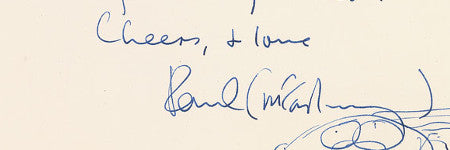 Cheers, & love
Paul (McCartney)